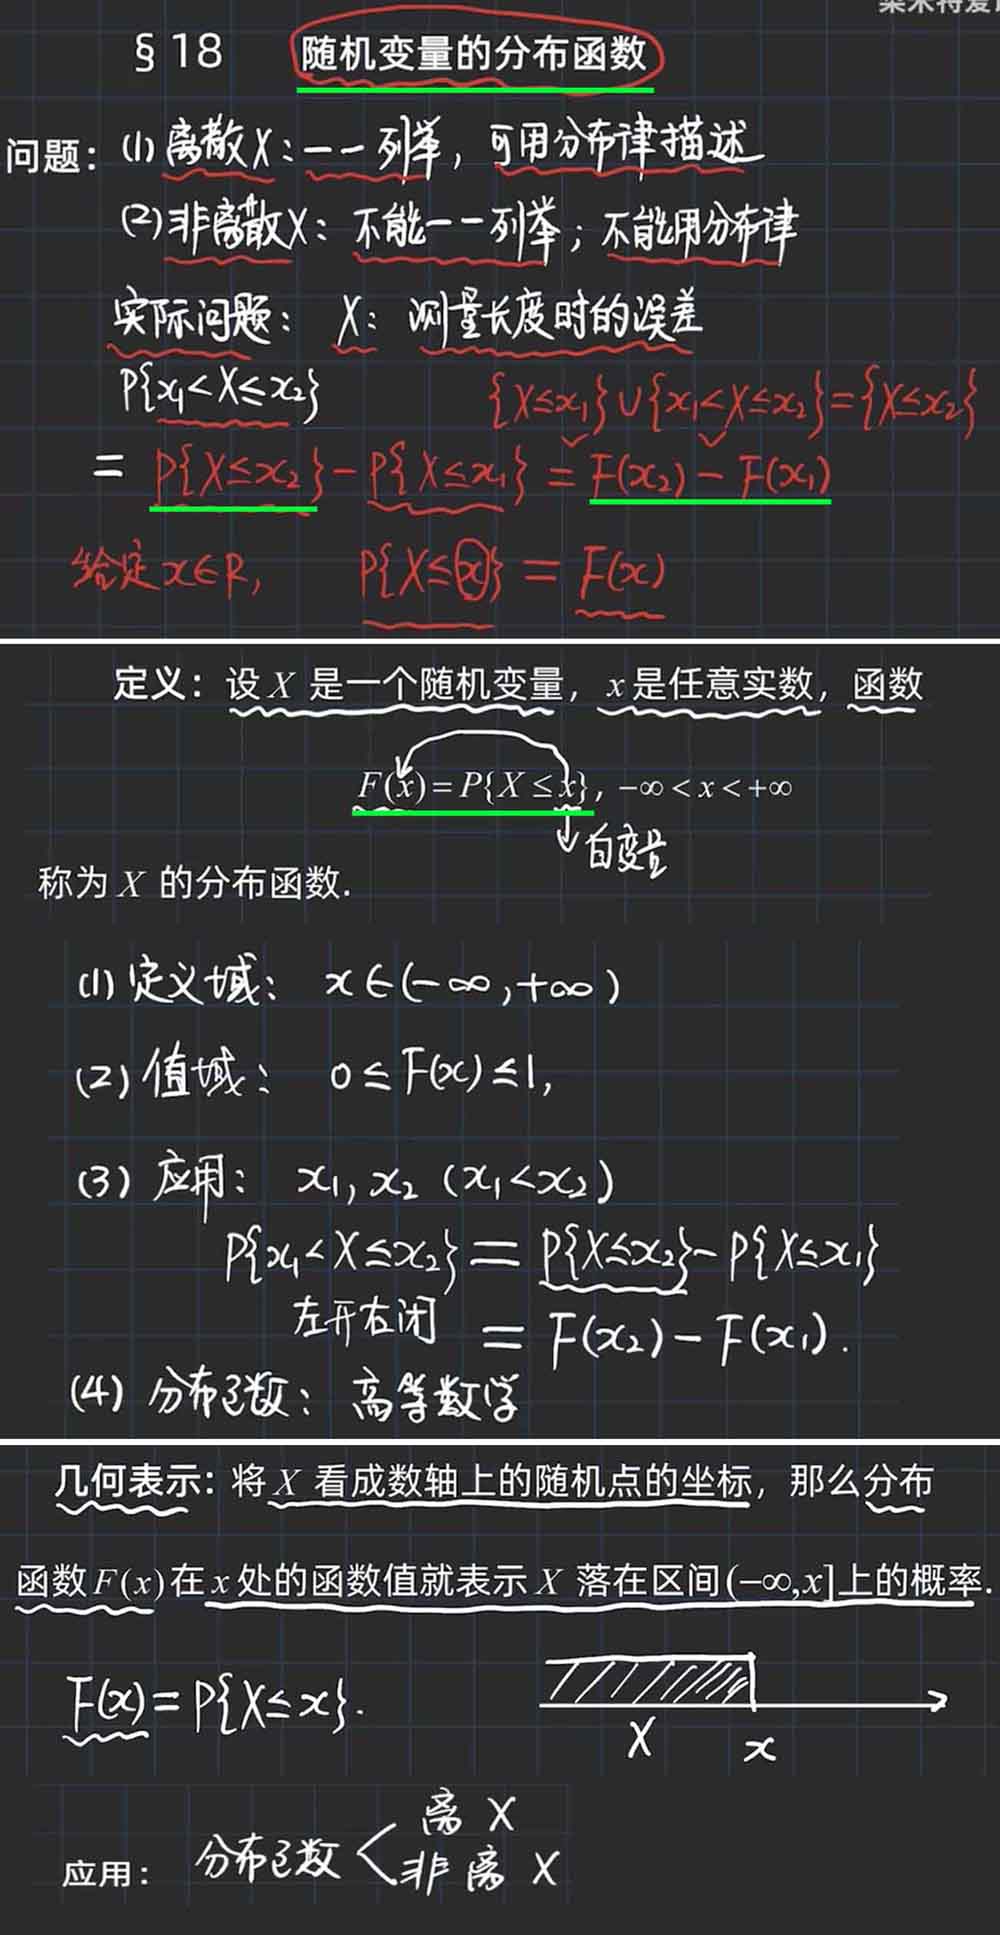 § 18 随机变量的分布函数
问题：(1) 离散X：一一列举，可用分布律描述
(2) 非离散X：不能一一列举；不能用分布律
实际问题：X：测量长度时的误差
P{x₁<X≤x₂} {X≤x₁}∪{x₁<X≤x₂}={X≤x₂}
= P{X≤x₂}-P{X≤x₁} = F(x₂)-F(x₁)
给定x∈R, P{X≤x} = F(x)
定义：设 X 是一个随机变量，x 是任意实数，函数
F(x)=P{X≤x}, -∞<x<+∞
自变量
称为 X 的分布函数.
(1) 定义域：x∈(-∞,+∞)
(2) 值域：0≤F(x)≤1,
(3) 应用：x₁, x₂ (x₁<x₂)
P{x₁<X≤x₂} = P{X≤x₂}-P{X≤x₁}
左开右闭 = F(x₂)-F(x₁).
(4) 分布函数：高等数学
几何表示：将 X 看成数轴上的随机点的坐标，那么分布
函数 F(x) 在 x 处的函数值就表示 X 落在区间 (-∞,x] 上的概率.
F(x)=P{X≤x}.
X x
离 X
应用：分布函数
非离 X